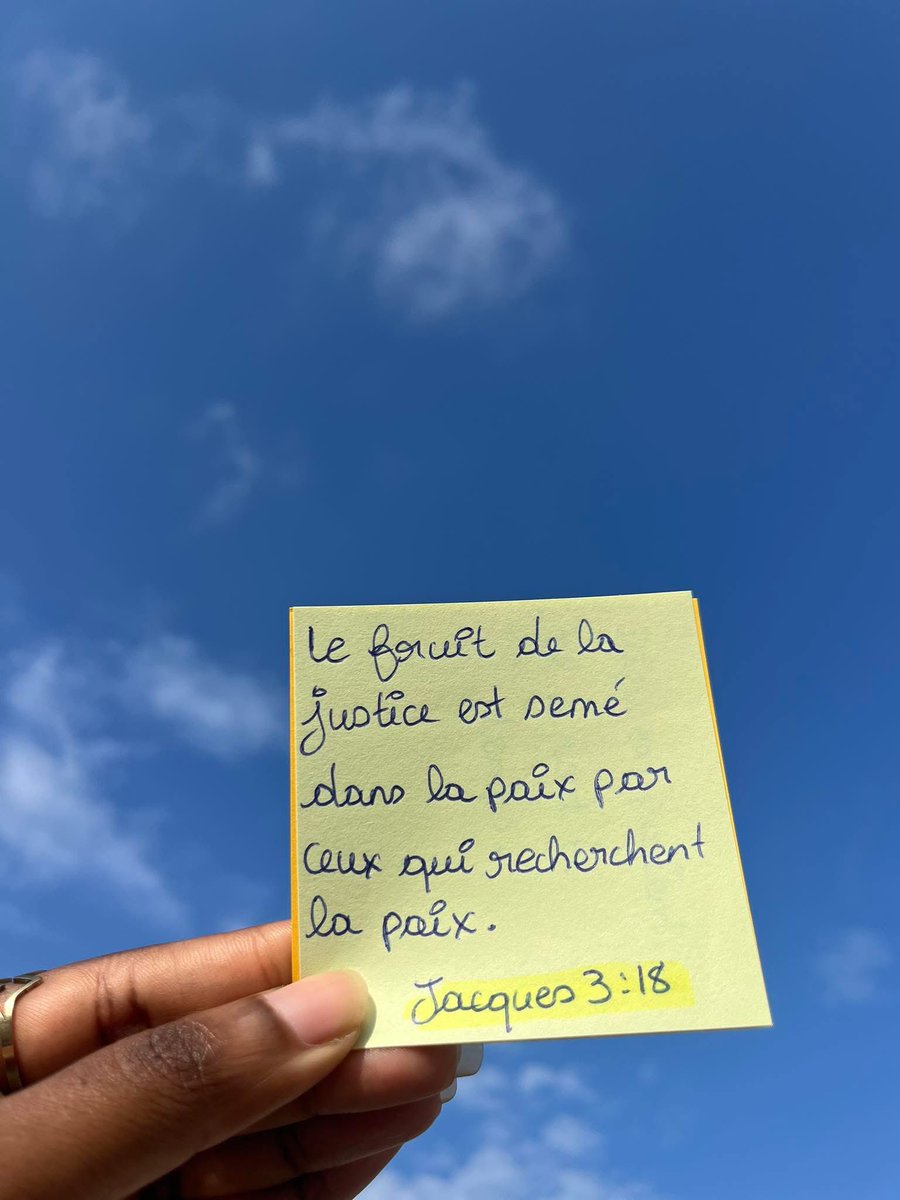 Le fruit de la
justice est semé
dans la paix par
ceux qui recherchent
la paix.
Jacques 3:18